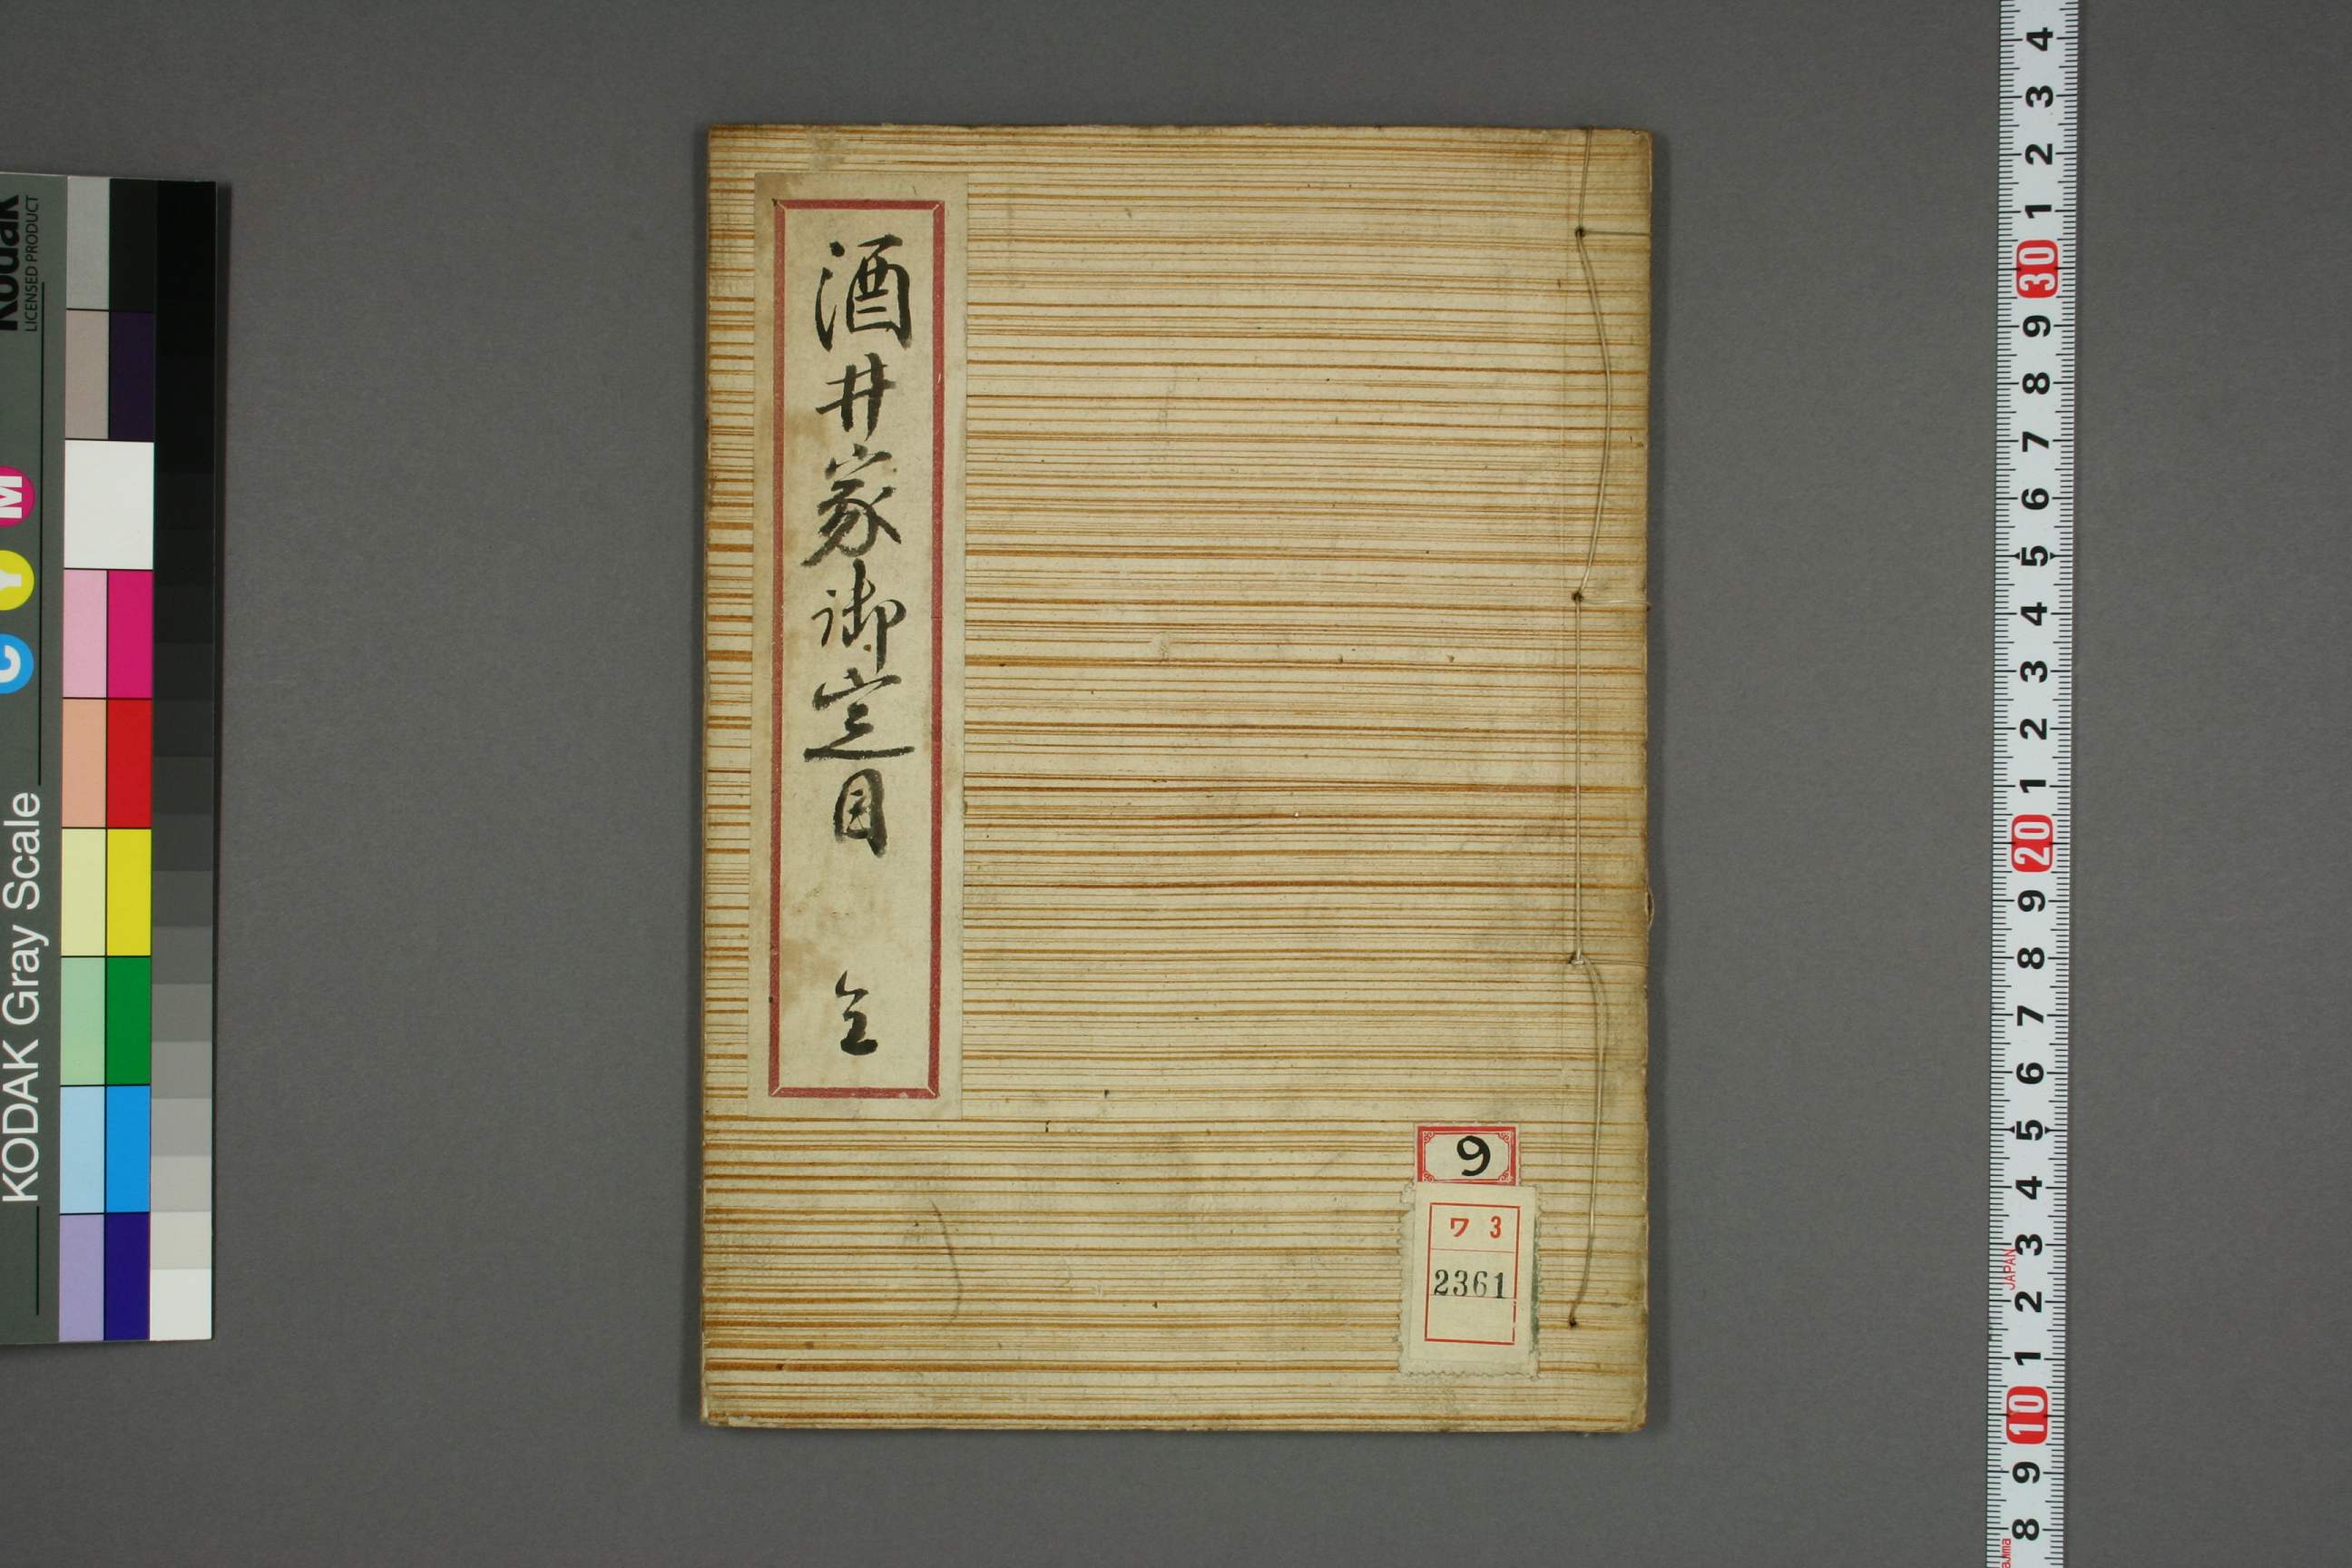 酒井家御定目 全
9
ワ 3
2361
Kodak
LICENSED PRODUCT
KODAK Gray Scale
C Y M
4
3
2
1
30
9
8
7
6
5
4
3
2
1
20
9
8
7
6
5
4
3
JAPAN
2
1
10
9
8